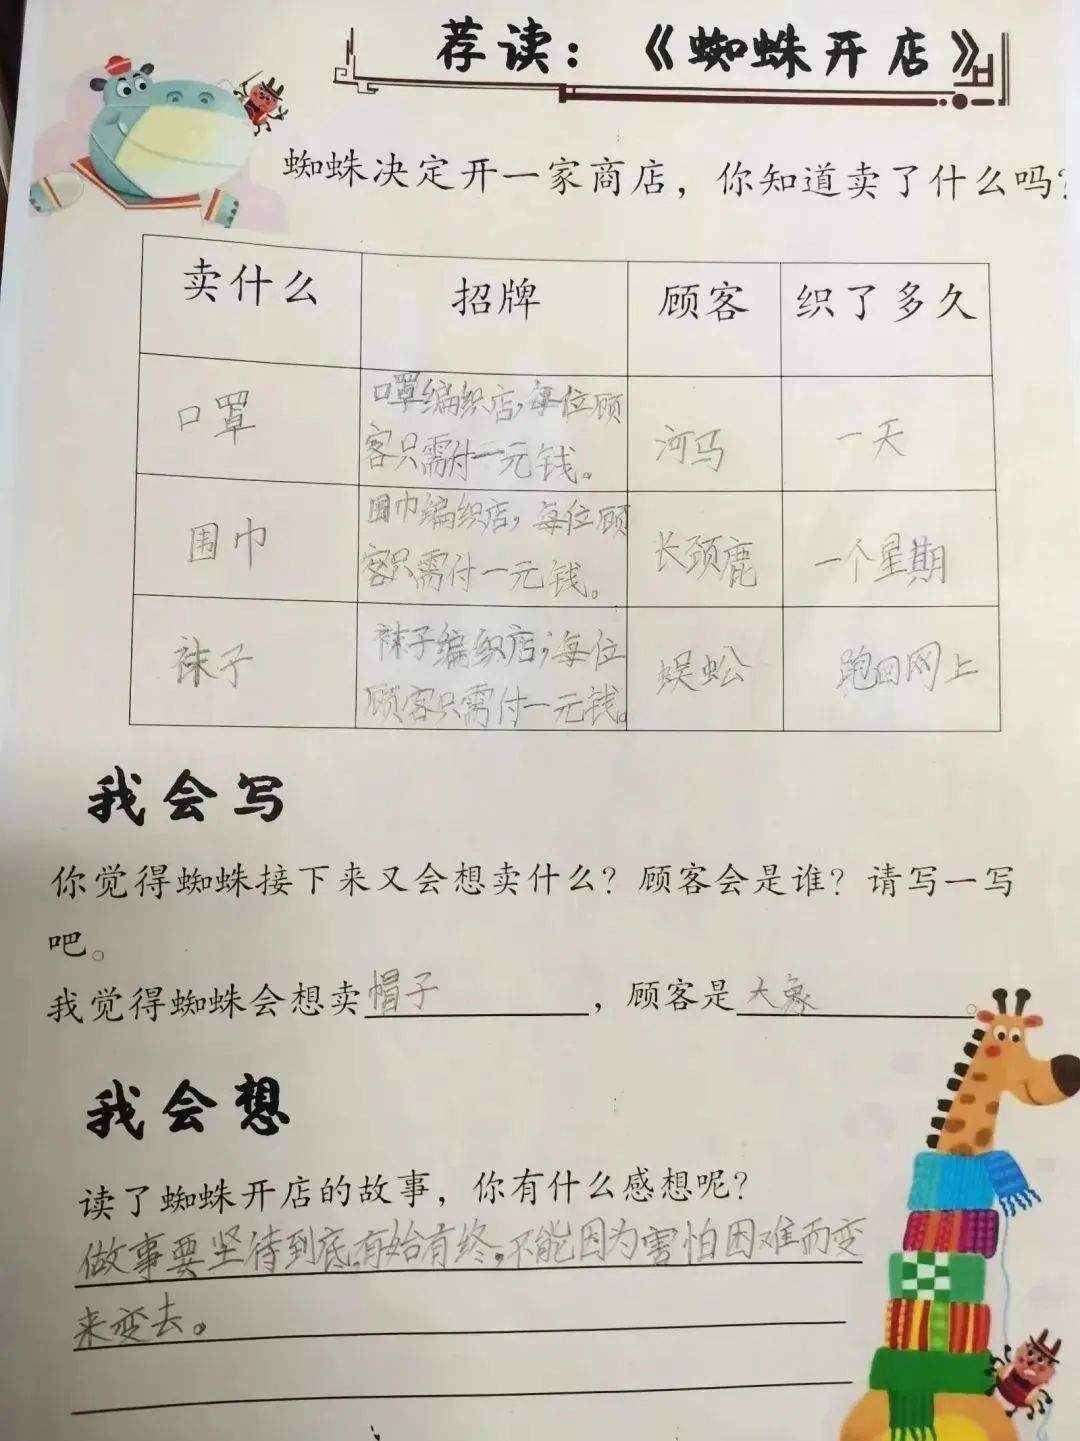 荐读：《蜘蛛开店》
蜘蛛决定开一家商店，你知道卖了什么吗？
卖什么 招牌 顾客 织了多久
口罩 口罩编织店，每位顾客只需付一元钱。 河马 一天
围巾 围巾编织店，每位顾客只需付一元钱。 长颈鹿 一个星期
袜子 袜子编织店，每位顾客只需付一元钱。 蜈蚣 跑回网上
我会写
你觉得蜘蛛接下来又会想卖什么？顾客会是谁？请写一写
吧。
我觉得蜘蛛会想卖帽子，顾客是大象。
我会想
读了蜘蛛开店的故事，你有什么感想呢？
做事要坚待到底，有始有终，不能因为害怕困难而变
来变去。